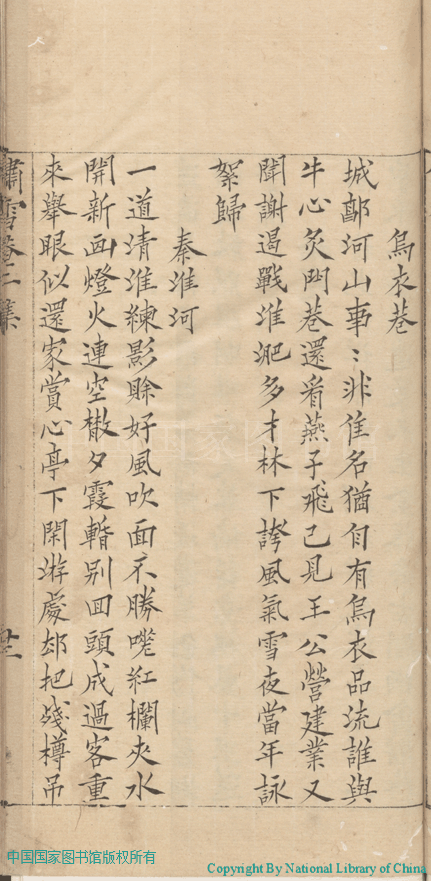 烏衣巷
城鄽河山事〻非隹名猶自有烏衣品流誰與
牛心炙門巷還看燕子飛已見王公營建業又
聞謝遏戰淮淝多才林下誇風氣雪夜當年詠
絮歸
秦淮河
一道清淮練影賒好風吹面不勝嗟紅欄夾水
開新画燈火連空散夕霞暫别回頭成過客重
來舉眼似還家賞心亭下閑游處却把殘樽吊
嘯雪卷二集
廿一
中国国家图书馆
中国国家图书馆版权所有
Copyright By National Library of China